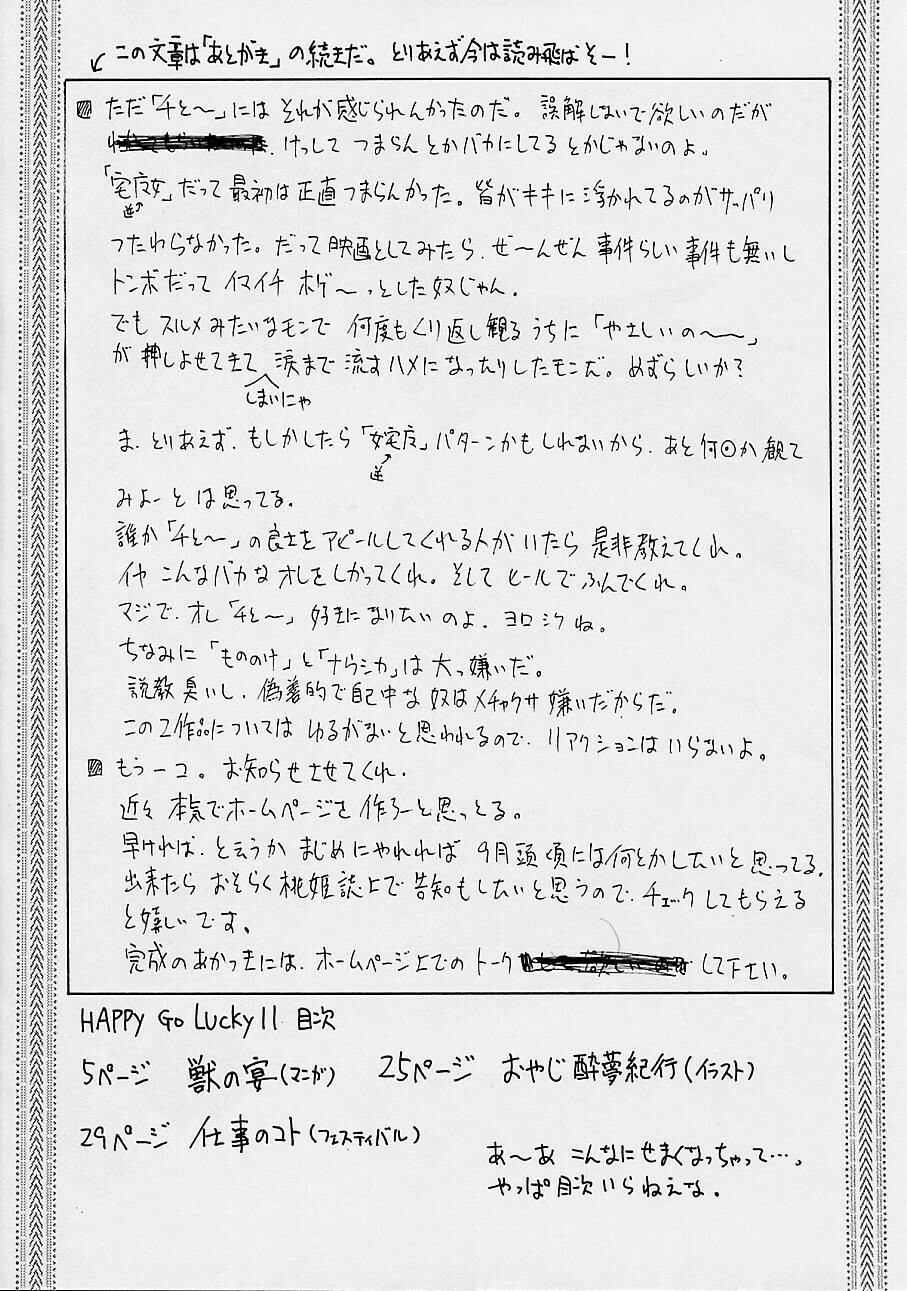 この文章は「あとがき」の続きだ。とりあえず今は読み飛ばそー!
ただ「千と〜」には それが感じられんかったのだ。誤解しないで欲しいのだが
けっして つまらんとかバカにしてるとかじゃないのよ。
「宅女」だって最初は正直つまらんかった。皆がキキに浮かれてるのがサッパリ
逆
つたわらなかった。だって映画としてみたら、ぜ〜んぜん 事件らしい事件も無いし
トンボだって イマイチ ボゲ〜っとした奴じゃん。
でも スルメみたいなモンで 何度もくり返し観るうちに「やさしいの〜〜」
が押しよせてきて 涙まで流すハメになったりしたモンだ。めずらしいか?
しまいにゃ
ま、とりあえず、もしかしたら「女宅」パターンかもしれないから、あと何回か観て
逆
みよーとは思ってる。
誰か「千と〜」の良さをアピールしてくれる人がいたら 是非教えてくれ。
イヤ こんなバカなオレをしかってくれ。そして ヒールでふんでくれ。
マジで、オレ「千と〜」好きになりたいのよ、ヨロシクね。
ちなみに「もののけ」と「ナウシカ」は 大っ嫌いだ。
説教臭いし、偽善的で自己中な奴はメチャクサ嫌いだからだ。
この2作品については ゆるがないと思われるので、リアクションはいらないよ。
もう一コ。お知らせさせてくれ。
近々 本気でホームページを 作ろーと思っとる。
早ければ、と云うか まじめにやれれば 9月頭頃には何とかしたいと思ってる。
出来たら おそらく桃姫誌上で 告知もしたいと思うので、チェックしてもらえる
と嬉しいです。
完成のあかつきには、ホームページ上でのトーク して下さい。
HAPPY Go Lucky 11 目次
5ページ 獣の宴(マンガ) 25ページ おやじ酔夢紀行(イラスト)
29ページ 仕事のコト(フェスティバル)
あ〜あ こんなにせまくなっちゃって…、
やっぱ目次いらねえな。